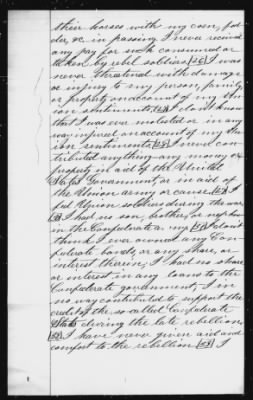 their horses with my corn, fod-
der &c in passing I never received
any pay for such consumed or
taken by rebel soldiers I was
never threatened with damage
or injury to my person, family
or property on account of my Un-
ion sentiments I do not know
that I was ever molested or in any
way injured on account of my Un-
ion sentiments I never con-
tributed anything any money or
property in aid of the United
States Government or in aid of
the Union army or cause I
fed Union soldiers during the war
I had no son, brother, or nephew
in the Confederate army I don't
think I ever owned any Con-
federate bonds, or any share, or
interest therein, I had no share
or interest in any loans to the
Confederate government, I in
no way contributed to support the
credit of the so-called Confederate
States during the late rebellion,
I have never given aid and
comfort to the rebellion I